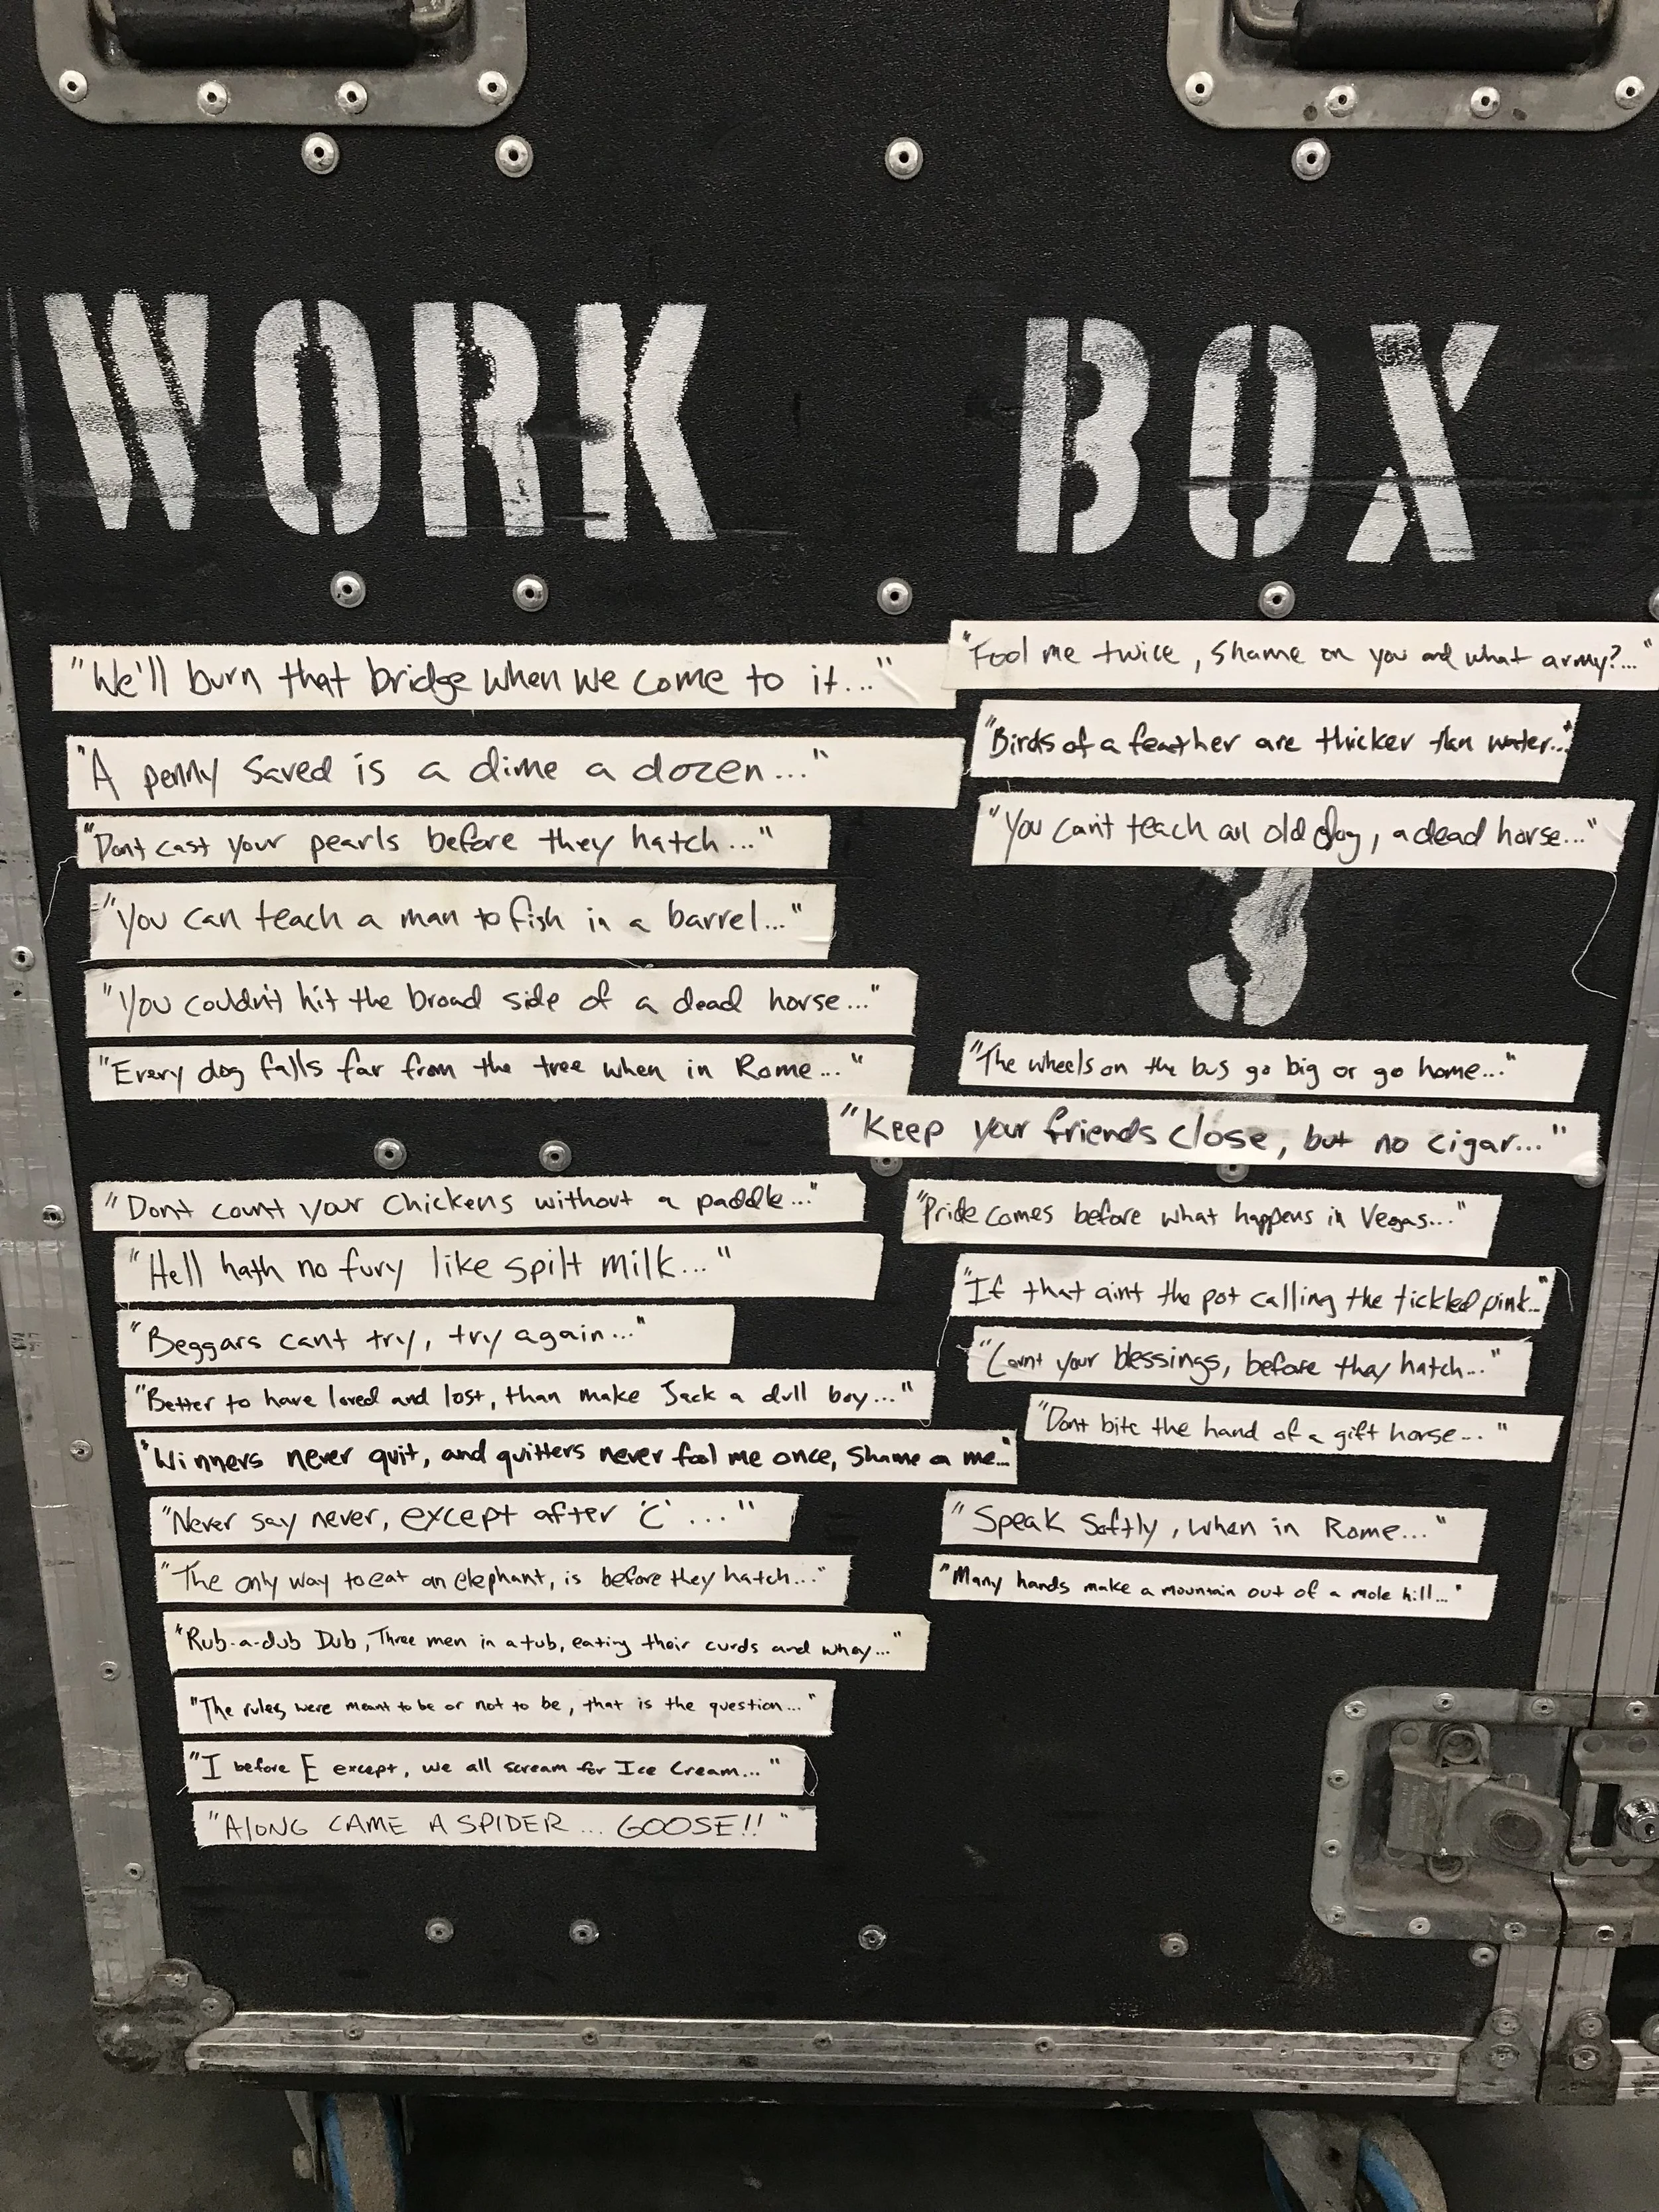 WORK BOX
"We'll burn that bridge when we come to it..."
"A penny saved is a dime a dozen..."
"Dont cast your pearls before they hatch..."
"You can teach a man to fish in a barrel..."
"You couldn't hit the broad side of a dead horse..."
"Every dog falls far from the tree when in Rome..."
"Dont count your Chickens without a paddle..."
"Hell hath no fury like spilt milk..."
"Beggars cant try, try again..."
"Better to have loved and lost, than make Jack a dull boy..."
"Winners never quit, and quitters never fool me once, Shame on me..."
"Never say never, except after 'C'..."
"The only way to eat an elephant, is before they hatch..."
"Rub-a-dub Dub, Three men in a tub, eating their curds and whey..."
"The rules were meant to be or not to be, that is the question..."
"I before E except, we all scream for Ice Cream..."
"AlONG CAME A SPIDER... GOOSE!!"
"Fool me twice, shame on you and what army?..."
"Birds of a feather are thicker than water..."
"You can't teach an old dog, a dead horse..."
"The wheels on the bus go big or go home..."
"Keep your friends close, but no cigar..."
"Pride comes before what happens in Vegas..."
"If that aint the pot calling the tickled pink..."
"Count your blessings, before they hatch..."
"Dont bite the hand of a gift horse..."
"Speak Softly, when in Rome..."
"Many hands make a mountain out of a mole hill..."